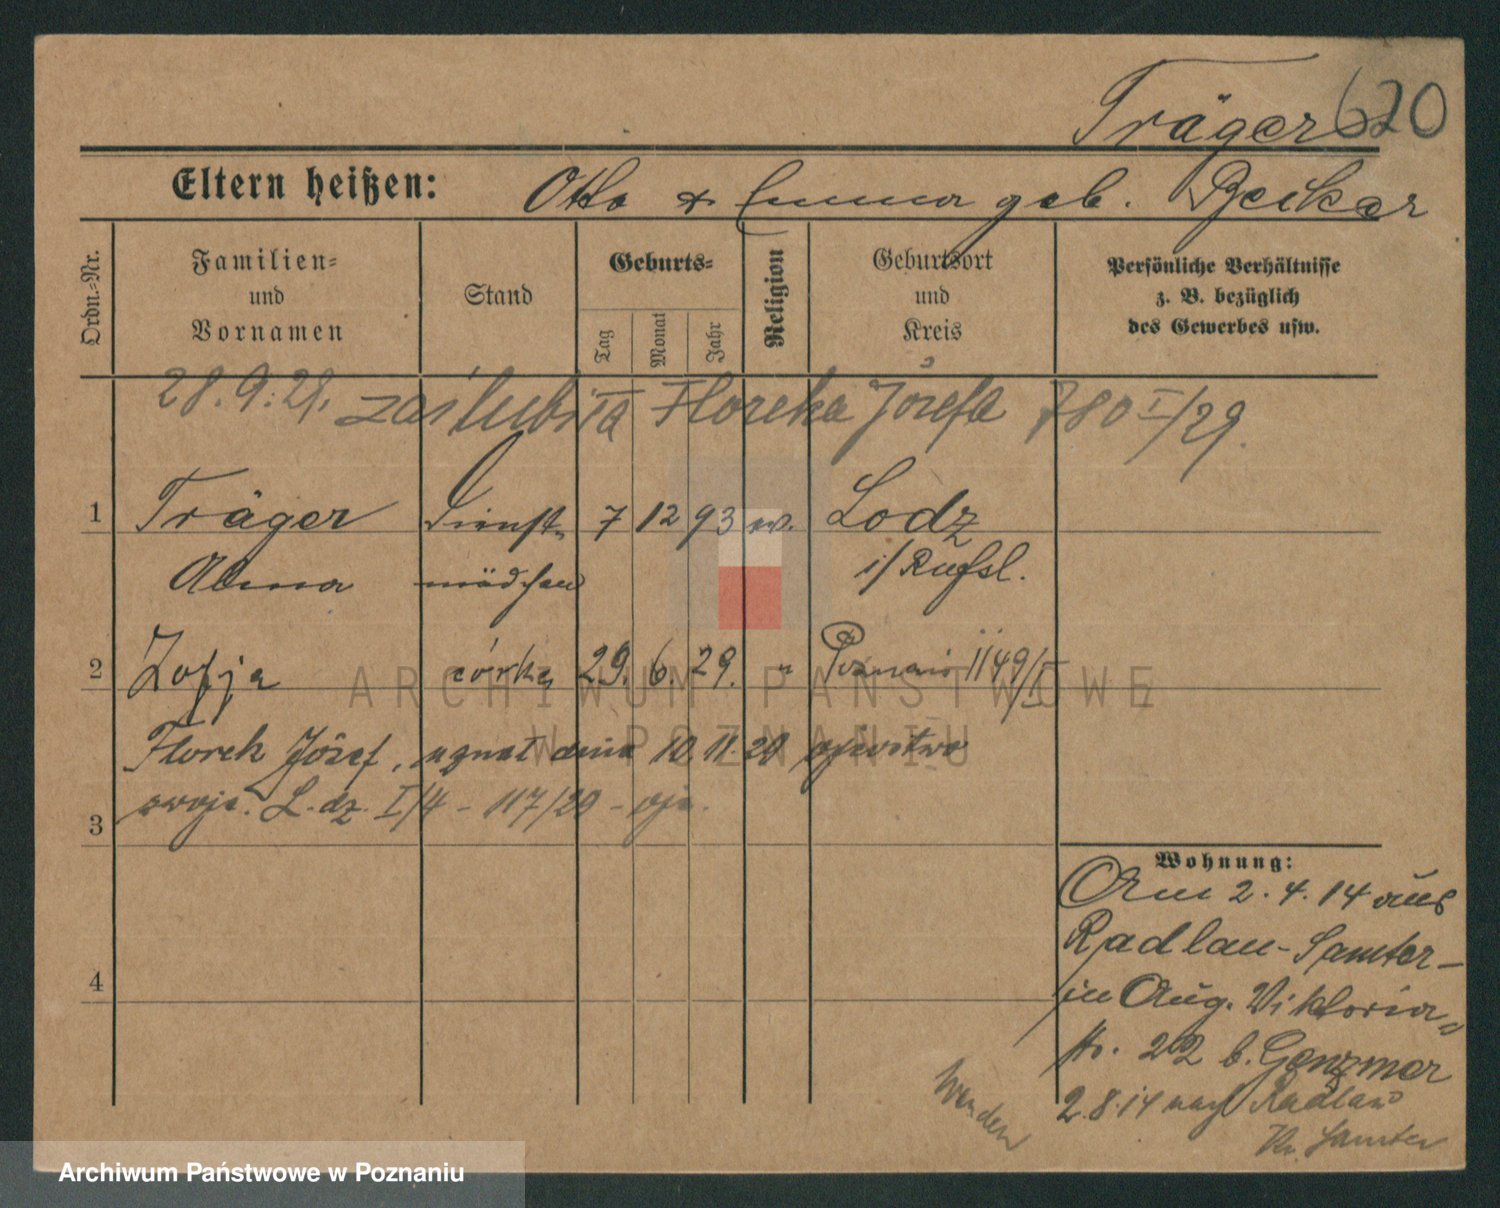 Träger 620
Eltern heißen: Otto & Emma geb. Becker
Ordn.-Nr.
Familien-
und
Vornamen
Stand
Geburts-
Tag
Monat
Jahr
Religion
Geburtsort
und
Kreis
Persönliche Verhältnisse
z. B. bezüglich
des Gewerbes usw.
28.9.29. zaślubiła Florka Józefa 780 I/29.
1 Träger Dienst- 7 12 93 ev. Lodz
Alma mädchen i/Rußl.
2 Zofja córka 29. 6. 29. " 1149/I
Florek Józef, uznał dnia 10.11.29 ojcostwo
swoje. L. dz. I/4 - 117/29 - oje.
3
4
Wohnung:
Am 2.4.14 aus
Radlau-Samter-
in Aug. Viktoria-
str. 22 b. Genzmer
2.8.14 nach Radlau
Kr. Samter
Wenden
ARCHIWUM PAŃSTWOWE
W POZNANIU
Archiwum Państwowe w Poznaniu